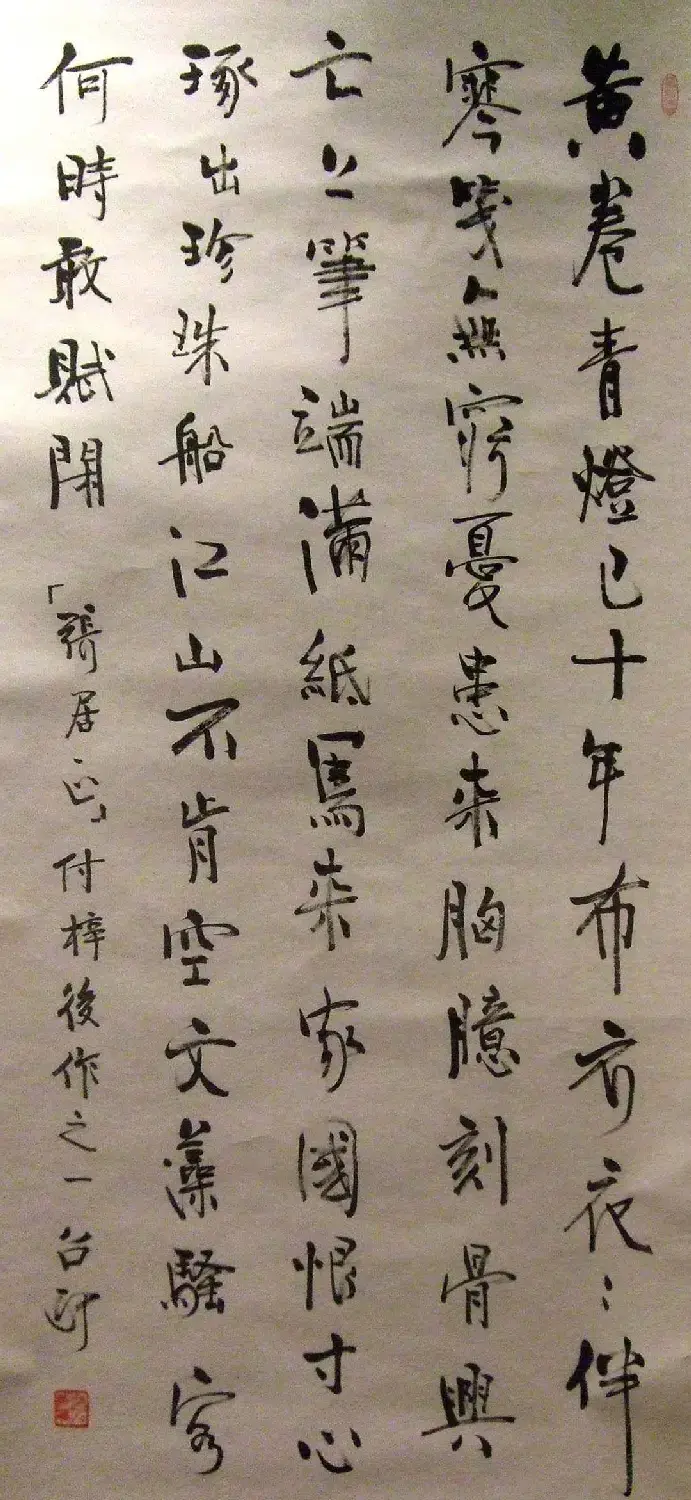 黄卷青燈已十年布衣夜〻伴
寒箋無窮憂患來胸臆刻骨興
亡上筆端滿紙寫來家國恨寸心
琢出珍珠船江山不肯空文藻騷客
何時敢賦閑「張居正」付梓後作之一 召政